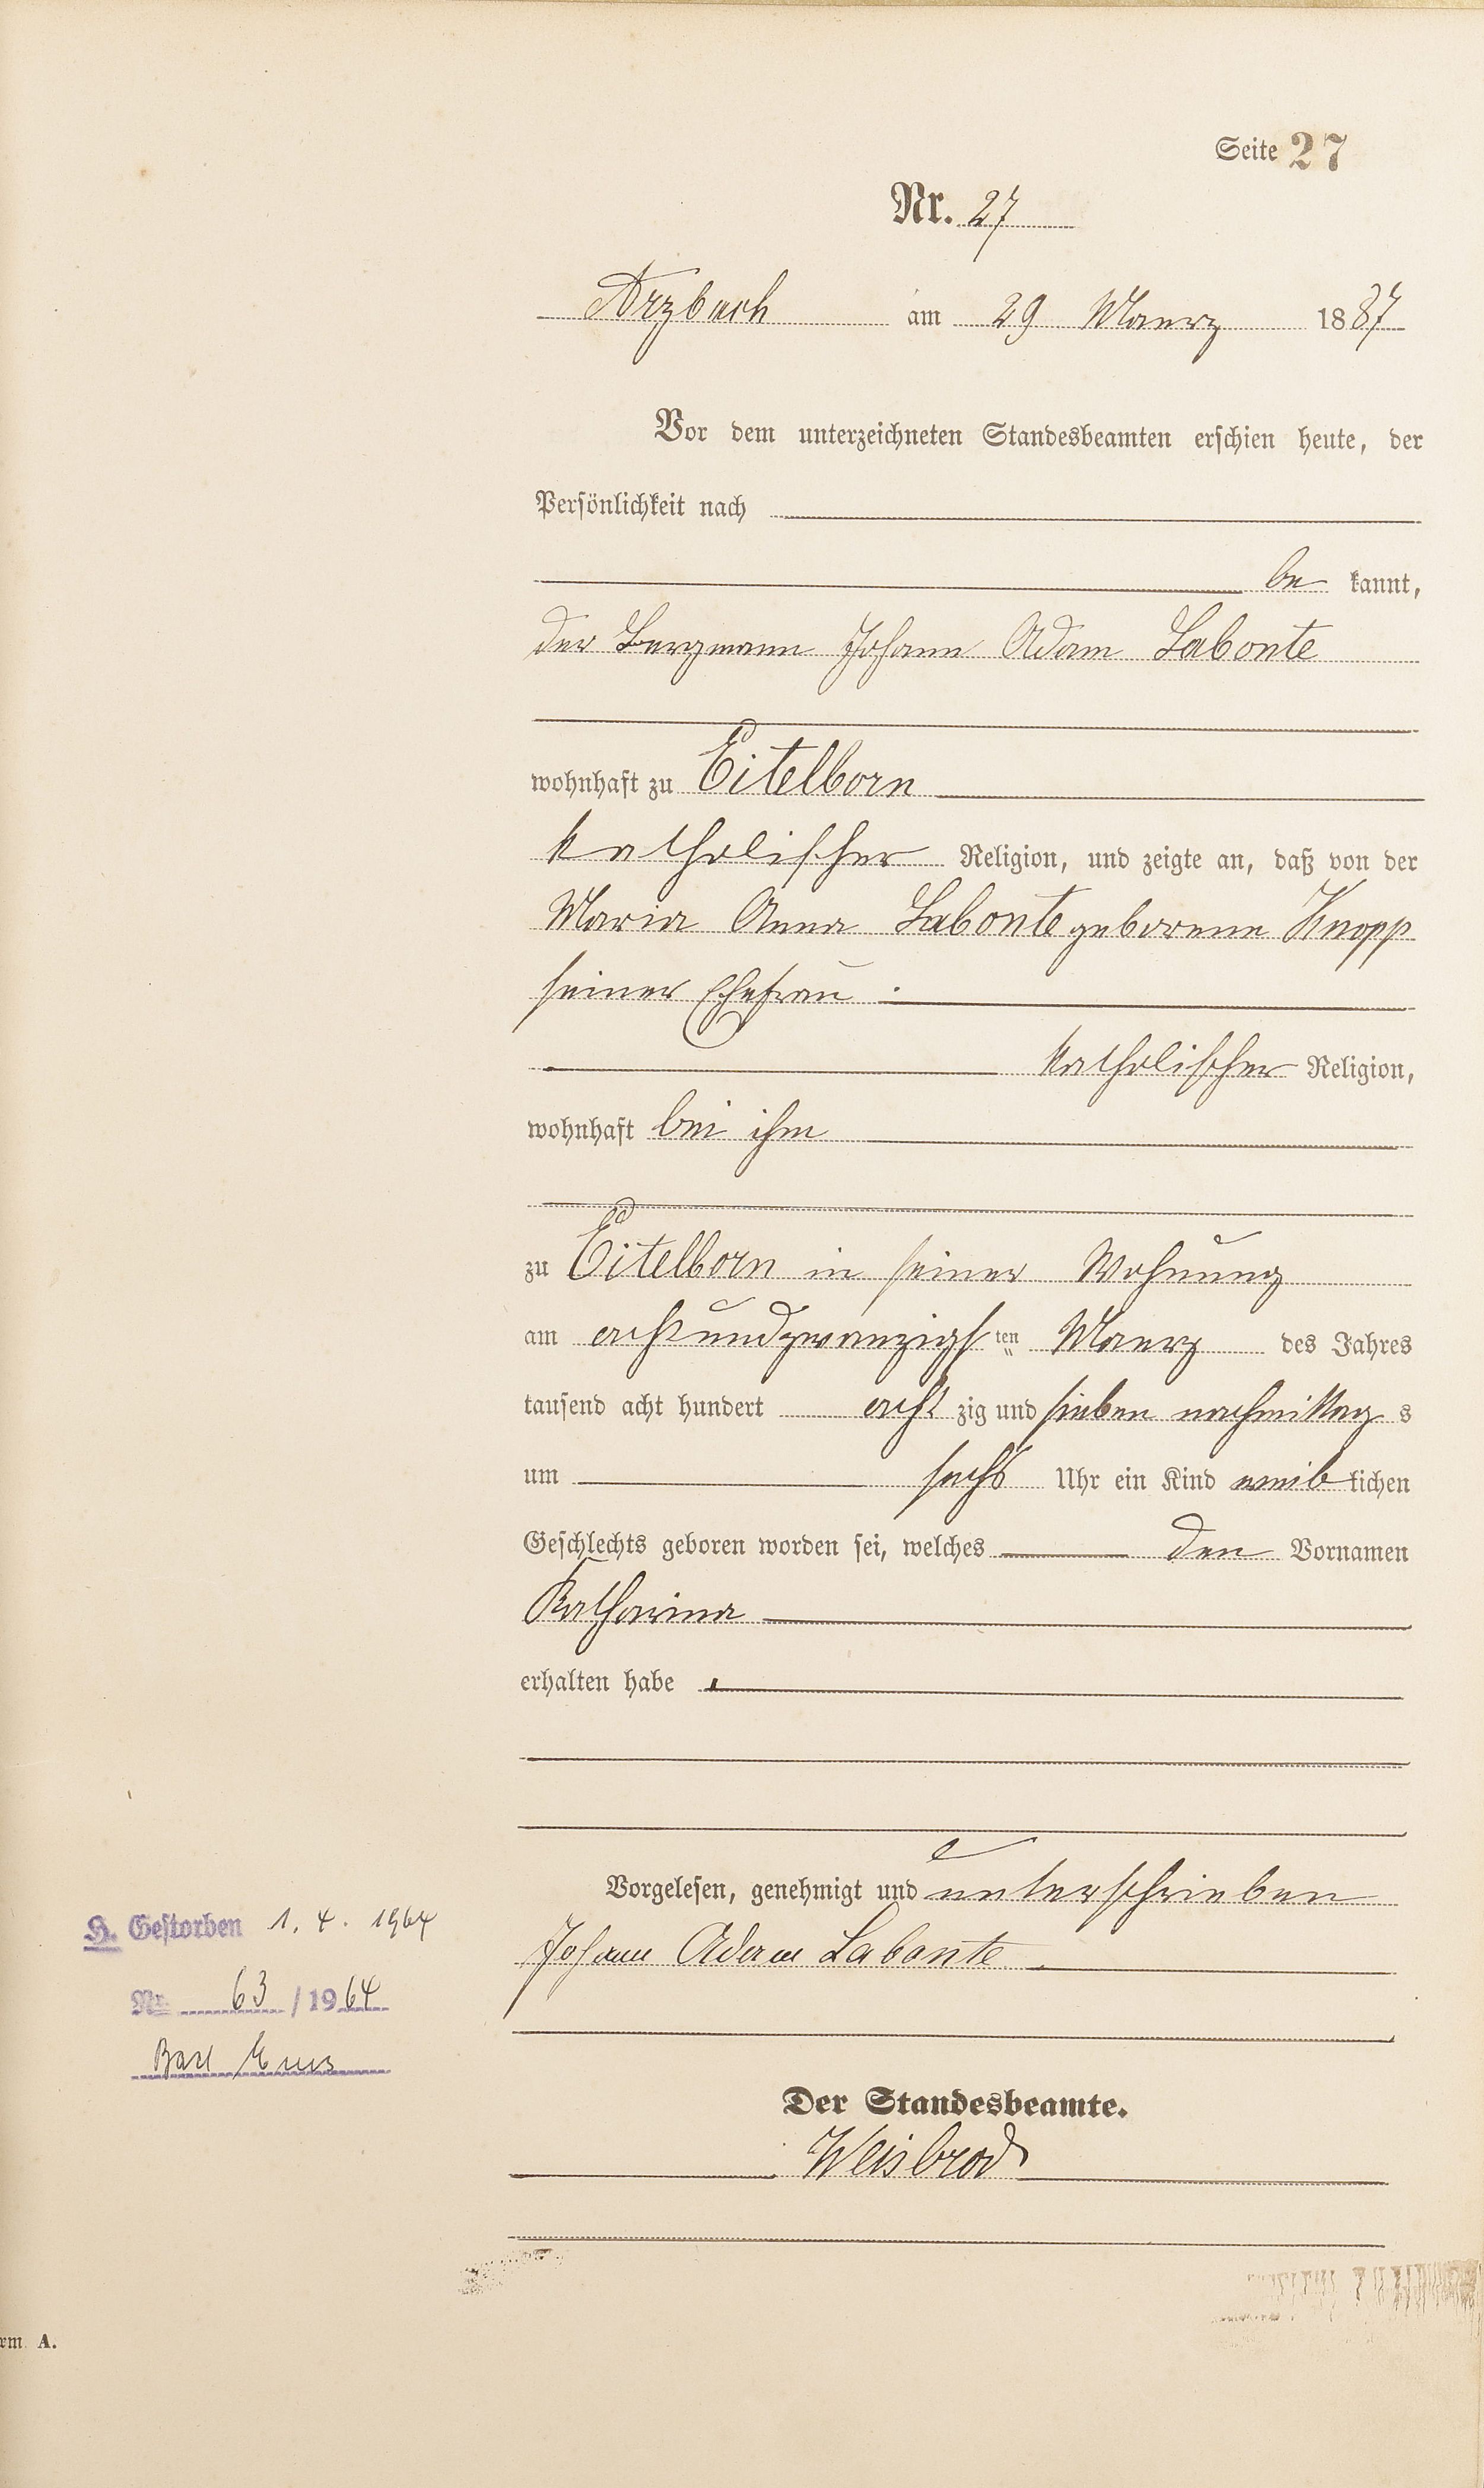 Seite 27
Nr. 27
Arzbach am 29 Maerz 1887
Vor dem unterzeichneten Standesbeamten erschien heute, der
Persönlichkeit nach
be kannt,
der Bergmann Johann Adam Labonte
wohnhaft zu Eitelborn
katholischer Religion, und zeigte an, daß von der
Maria Anna Labonte geborene Knopp
seiner Ehefrau
katholischer Religion,
wohnhaft bei ihm
zu Eitelborn in seiner Wohnung
am achtundzwanzigsten Maerz des Jahres
tausend acht hundert acht zig und sieben nachmittag s
um sechs Uhr ein Kind weib lichen
Geschlechts geboren worden sei, welches den Vornamen
Katharina
erhalten habe
Vorgelesen, genehmigt und unterschrieben
Johann Adam Labonte
Der Standesbeamte.
Weisbrod
H. Gestorben 1. 4. 1964
Nr. 63 / 1964
Bad Ems
rm. A.